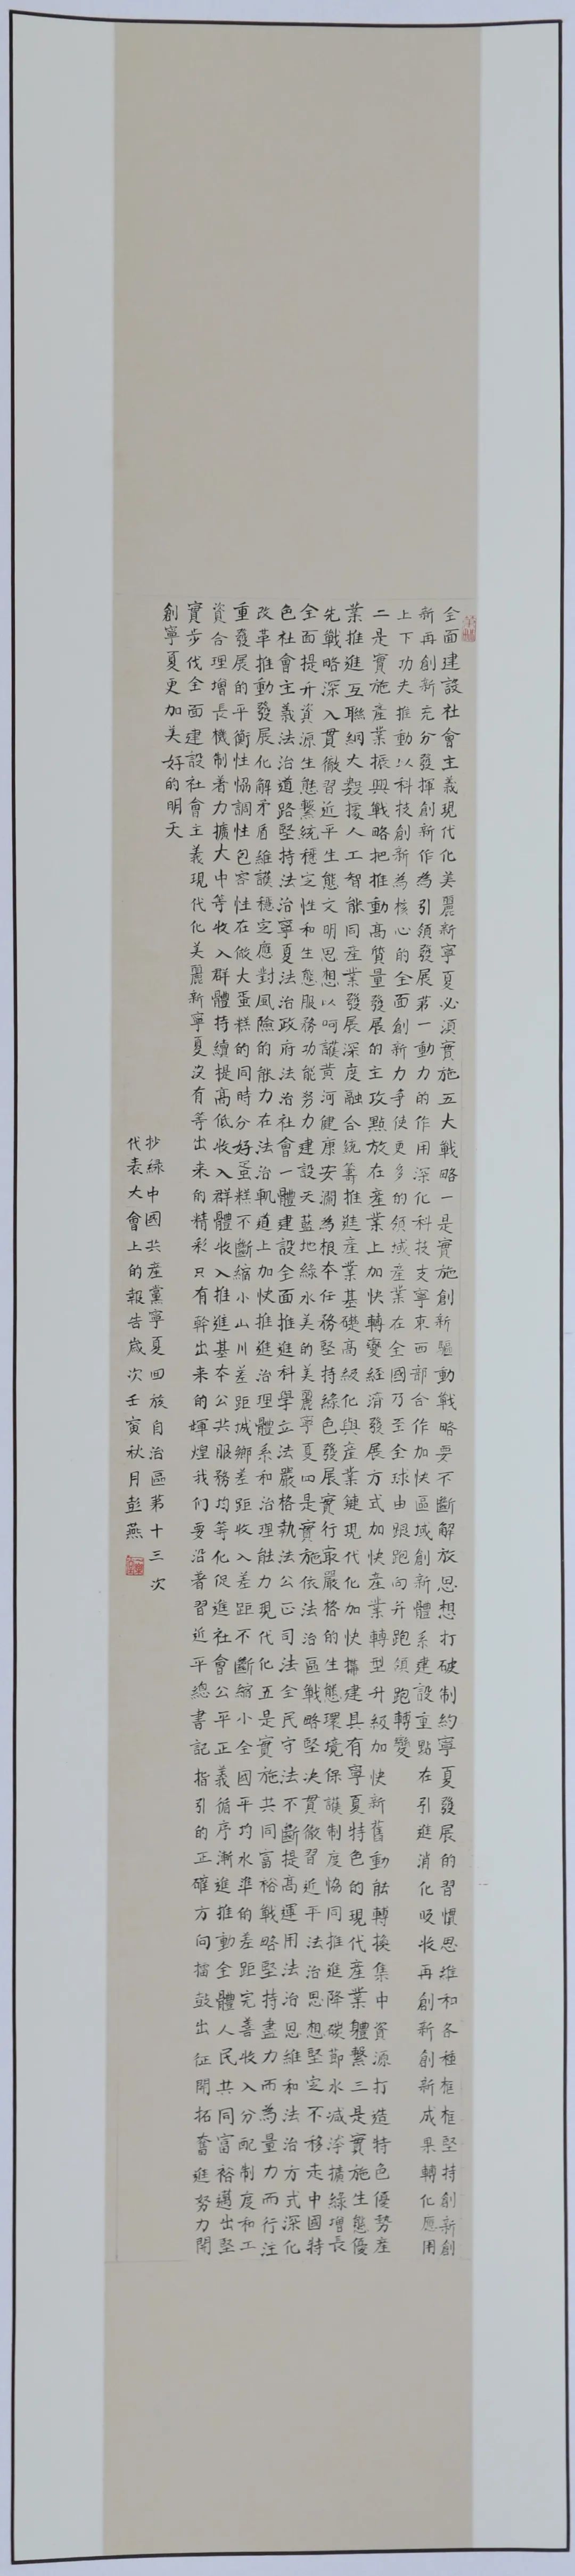 全面建設社會主義現代化美麗新寧夏必須實施五大戰略一是實施創新驅動戰略要不斷解放思想打破制約寧夏發展的習慣思維和各種框框堅持創新創
新再創新充分發揮創新作為引領發展第一動力的作用深化科技支寧東西部合作加快區域創新體系建設重點在引進消化吸收再創新創新成果轉化應用
上下功夫推動以科技創新為核心的全面創新力爭使更多的領域產業在全國乃至全球由跟跑向并跑領跑轉變
二是實施產業振興戰略把推動高質量發展的主攻點放在產業上加快轉變經濟發展方式加快產業轉型升級加快新舊動能轉換集中資源打造特色優勢產
業推進互聯網大數據人工智能同產業發展深度融合統籌推進產業基礎高級化與產業鏈現代化加快構建具有寧夏特色的現代產業體繫三是實施生態優
先戰略深入貫徹習近平生態文明思想以呵護黃河健康安瀾為根本任務堅持綠色發展實行最嚴格的生態環境保護制度協同推進降碳節水減污擴綠增長
全面提升資源生態繫統穩定性和生態服務功能努力建設天藍地綠水美的美麗寧夏四是實施依法治區戰略堅決貫徹習近平法治思想堅定不移走中國特
色社會主義法治道路堅持法治寧夏法治政府法治社會一體建設全面推進科學立法嚴格執法公正司法全民守法不斷提高運用法治思維和法治方式深化
改革推動發展化解矛盾維護穩定應對風險的能力在法治軌道上加快推進治理體系和治理能力現代化五是實施共同富裕戰略堅持盡力而為量力而行注
重發展的平衡性協調性包容性在做大蛋糕的同時分好蛋糕不斷縮小山川差距城鄉差距收入差距不斷縮小全國平均水準的差距完善收入分配制度和工
資合理增長機制着力擴大中等收入群體持續提高低收入群體收入推進基本公共服務均等化促進社會公平正義循序漸進推動全體人民共同富裕邁出堅
實步伐全面建設社會主義現代化美麗新寧夏沒有等出来的精彩只有幹出来的輝煌我们要沿着習近平總書記指引的正確方向擂鼓出征開拓奮進努力開
創寧夏更加美好的明天
抄綠中國共產黨寧夏回族自治區第十三次
代表大會上的報告歲次壬寅秋月彭燕